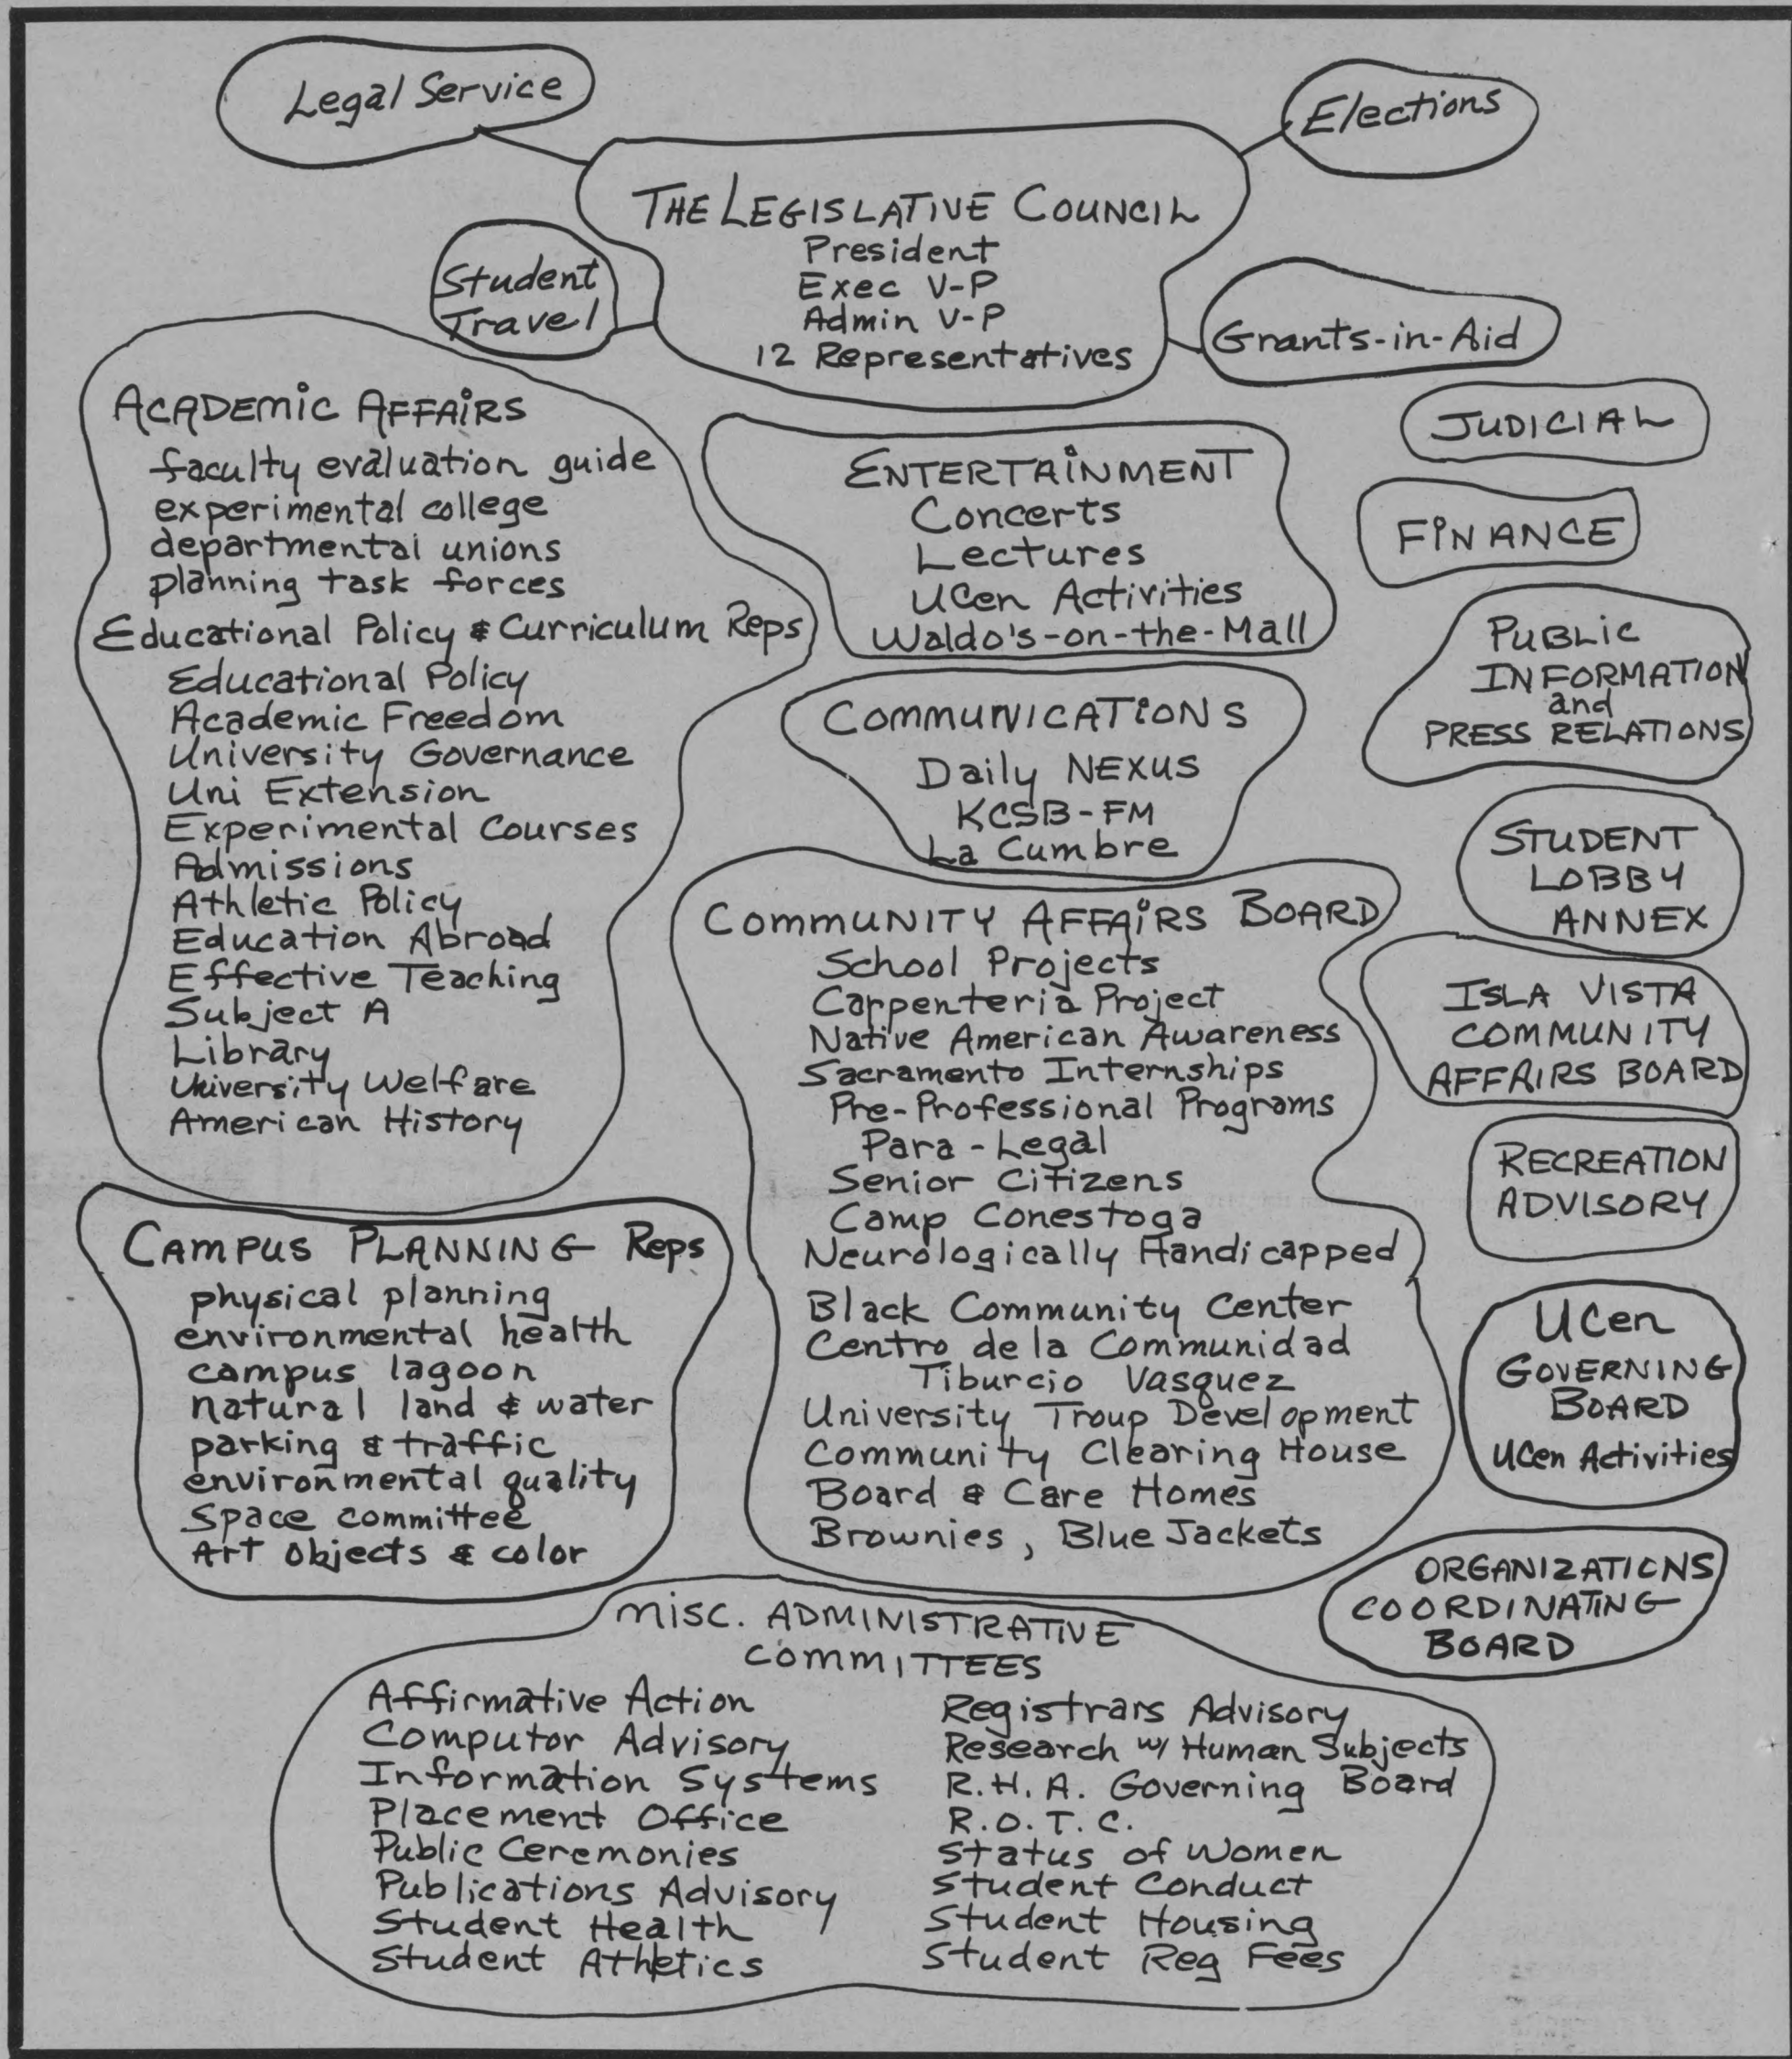 Legal Service
Elections
THE LEGISLATIVE COUNCIL
President
Exec V-P
Admin V-P
12 Representatives
Student
Travel
Grants-in-Aid
ACADEMIC AFFAIRS
faculty evaluation guide
experimental college
departmental unions
planning task forces
Educational Policy & Curriculum Reps
Educational Policy
Academic Freedom
University Governance
Uni Extension
Experimental Courses
Admissions
Athletic Policy
Education Abroad
Effective Teaching
Subject A
Library
University Welfare
American History
ENTERTAINMENT
Concerts
Lectures
UCen Activities
Waldo's-on-the-Mall
COMMUNICATIONS
Daily NEXUS
KCSB-FM
La Cumbre
JUDICIAL
FINANCE
PUBLIC
INFORMATION
and
PRESS RELATIONS
STUDENT
LOBBY
ANNEX
COMMUNITY AFFAIRS BOARD
School Projects
Carpenteria Project
Native American Awareness
Sacramento Internships
Pre-Professional Programs
Para-Legal
Senior Citizens
Camp Conestoga
Neurologically Handicapped
Black Community Center
Centro de la Communidad
Tiburcio Vasquez
University Troup Development
Community Clearing House
Board & Care Homes
Brownies, Blue Jackets
ISLA VISTA
COMMUNITY
AFFAIRS BOARD
RECREATION
ADVISORY
UCen
GOVERNING
BOARD
UCen Activities
ORGANIZATIONS
COORDINATING
BOARD
CAMPUS PLANNING Reps
physical planning
environmental health
campus lagoon
natural land & water
parking & traffic
environmental quality
Space committee
Art Objects & color
MISC. ADMINISTRATIVE
COMMITTEES
Affirmative Action
Computor Advisory
Information Systems
Placement Office
Public Ceremonies
Publications Advisory
Student Health
Student Athletics
Registrars Advisory
Research w/ Human Subjects
R.H.A. Governing Board
R.O.T.C.
Status of Women
Student Conduct
Student Housing
Student Reg Fees